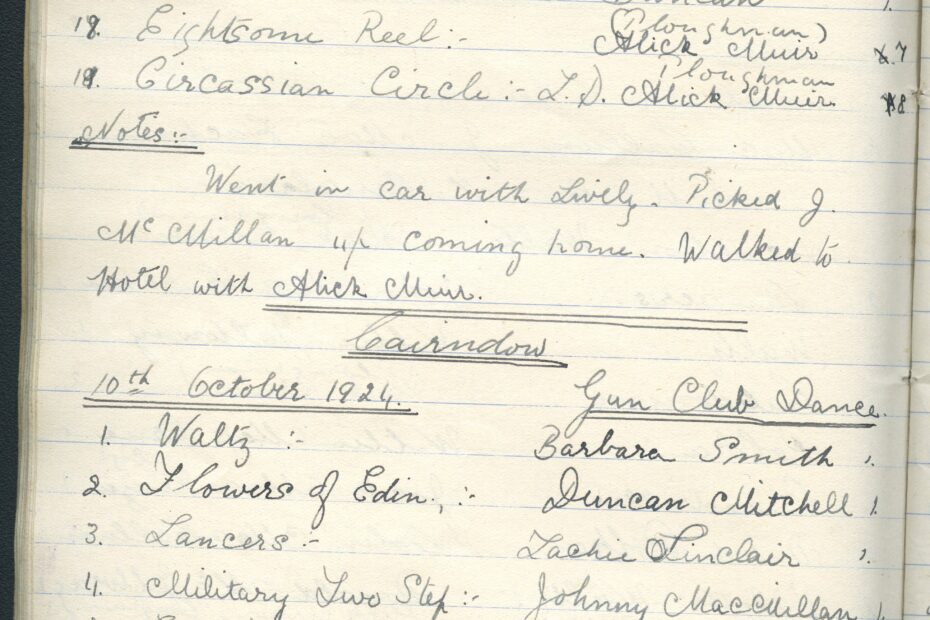 Duncan 1.
18. Eightsome Reel:- (Ploughman) Alick Muir 7
19. Circassian Circle:- L.D. Ploughman Alick Muir. 8
Notes:-
Went in car with Lively. Picked J.
McMillan up coming home. Walked to
Hotel with Alick Muir.
Cairndow
10th October 1924. Gun Club Dance.
1. Waltz:- Barbara Smith 1.
2. Flowers of Edin.,:- Duncan Mitchell 1.
3. Lancers:- Lachie Sinclair 1.
4. Military Two Step:- Johnny MacMillan 1.